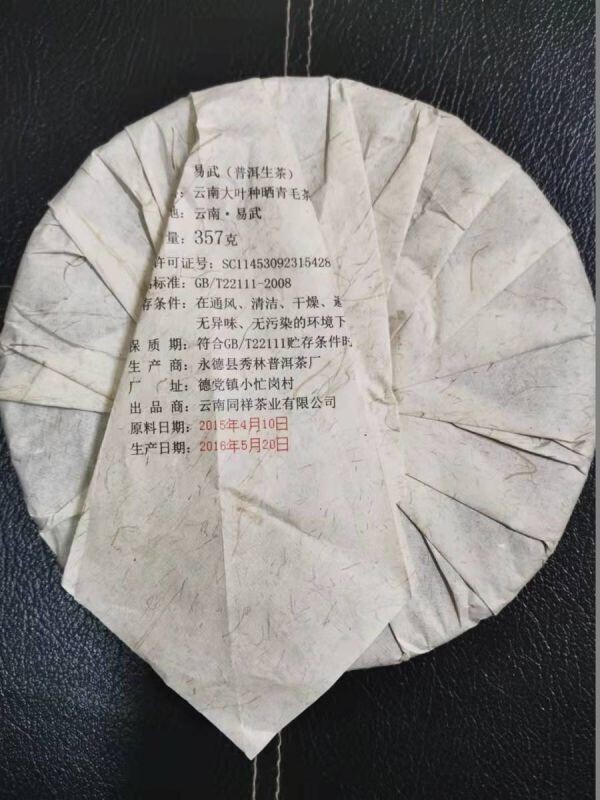 易武（普洱生茶）
：云南大叶种晒青毛茶
地：云南·易武
量：357克
许可证号：SC11453092315428
标准：GB/T22111-2008
存条件：在通风、清洁、干燥、
无异味、无污染的环境下
保质期：符合GB/T22111贮存条件时
生产商：永德县秀林普洱茶厂
厂址：德党镇小忙岗村
出品商：云南同祥茶业有限公司
原料日期：2015年4月10日
生产日期：2016年5月20日